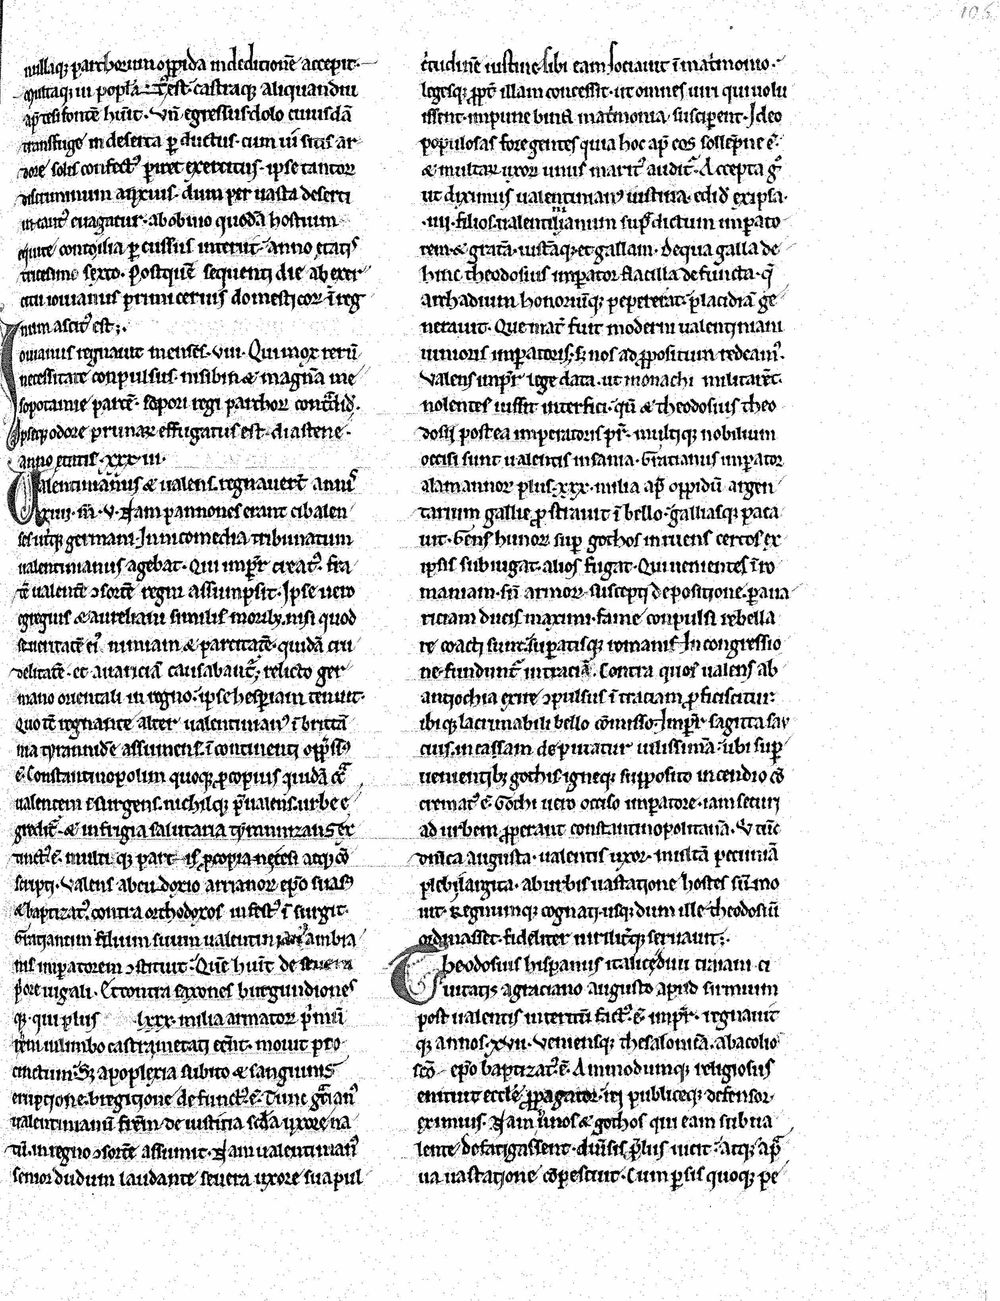 105
nullaq; parthorum oppida indeditionē accepit·
multaq; ui popl'a· est· castraq; aliquandiu
ap̄ tesifontē huīt· Vn̄ egressus· dolo cuiusdā
transfuge in deserta ꝑ ductus· cum ui sitis ar
dore solis confectꝰ periret exercitus· ipse tantor
discriminum anxius· dum per uasta deserti
incautꝰ euagatur· ab obuio quodā hostium
equite conto ilia ꝑ cussus interiit· anno etatis
tricesimo sexto· Postquē sequenti die ab exer
citu iouianus primicerius domesticor ī reg
num ascitꝰ est;·
Iouianus regnauit menses· viii· Qui mox rerū
necessitate conpulsus· nisibin & magnā me
sopotamie partē· sapori regi parthor contdid·
Ipseq; odore prunar effugatus est· diastene·
anno etatis· xxx·iii·
Valentinianus & ualens· regnauerēt annꝰ
xiiii· m̄· v· Nam pannones erant cibalen
ses utiq; germani· In nicomedia tribunatum
ualentinianus agebat· Qui impr̄ creatꝰ· fra
tē ualentē ɔsortē regni assumpsit· Ipse uero
egregius & aureliani similis morib; nisi quod
seueritatē eiꝰ nimiam & parcitatē· quidā cru
delitatē· et auariciā causabant̄· relicto ger
mano orientali in regno· ipse hesperiam tenuit·
Quo tē regnante alter ualentinianꝰ ī brittā
nia tyrannidē assumens· ī continenti opp̄ssꝰ
ē· Constantinopolim quoq; procopius quidā cōt
ualentem īsurgens· nichilq; p̄ualens· urbe e
gredit̄· & in frigia salutaria tyrannizans ex
tinctꝰ ē· multi q; partis procopianę cesi atq; ꝓ
scripti· Valens ab eudoxio arrianor ep̄o suasꝰ
& baptizatꝰ· contra orthodoxos infestꝰ īsurgit·
Gratianum filium suum ualentinianꝰ ambia
nis imperatorem ɔstituit· Quē huīt de seuera
priore iugali· Et contra saxones burgundiones
q; qui plus lxxx· milia armator primū
rēni in limbo castrametati eēnt· mouit pro
cinctum· S; apoplexia subito & sanguinis
eruptione· brigitione defunctꝰ ē· Tunc gratianꝰ
ualentinianū fratrē de iustina scd'a uxore na
tū· in regno ɔsortē assumit· Nam ualentinianꝰ
senior dudum laudante seuera uxore sua pul
critudinē iustine· sibi eam sociauit ī matrimonio·
legesq; ꝓpt̄ illam concessit· ut omnes uiri qui uolu
issent· inpune bina matrimonia susciperent· Ideo
populosas fore gentes quia hoc ap̄ eos sollēpne ē·
& multar uxor unus maritꝰ audit̄· Accepta g̊
ut diximus ualentinianꝰ iustina· edid ex ipsa·
·iiii· filios· ualentinianum sup̄dictum imperato
rem· & gratā· iustāq; et gallam· De qua galla de
hinc theodosius imperator flacilla defuncta· q̄
archadium honoriūq; pepererat· placidiā ge
nerauit· Que mat̄ fuit moderni ualentiniani
iunioris imperatoris· s; nos ad ꝓpositum redeamꝰ·
Valens impr̄ lege data· ut monachi militarēt·
nolentes iussit interfici· qū & theodosius theo
dosii postea imperatoris pr̄· multiq; nobilium
occisi sunt ualentis insania· Gratianus imperator
alamannor plus· xxx· milia ap̄ oppidū argen
tarium gallie ꝓstrauit ī bello· galliasq; paca
uit· Gens hunor super gothos inruens· certos ex
ipsis subiugat· alios fugat· Qui uenientes ī ro
maniam· sn̄ armor suscepti depositione· ꝑ aua
riciam ducis maximi· fame conpulsi rebella
re coacti sunt· suꝑatisq; romanis· In congressio
ne· fundunt̄ in traciā· Contra quos ualens ab
antiochia exire ɔpulsus ī traciam ꝓficiscitur·
ibiq; lacrimabili bello cōmisso· Impr̄ sagitta sau
cius· in cassam deportatur uilissimā· ubi super
uenientib; gothis· igneq; supposito incendio cō
crematꝰ ē· Gothi uero occiso imperatore· iam securi
ad urbem ꝓperant constantinopolitanā· V tūc
dn̄ica augusta· ualentis uxor· multā pecuniā
plebi largita· ab urbis uastatione hostes sūmo
uit· Regnumq; cognati· usq; dum ille theodosiū
ordinasset· fideliter uiriliterq; seruauit;·
Theodosius hispanus italicę diui traiani ci
uitatis· a graciano augusto apud sirmium
post ualentis interitū factꝰ ē· impr̄· regnauit
q; annos· xvii· Veniensq; thesalonicā· ab acolio
scō ep̄o baptizatꝰ ē· Ammodumq; religiosus
enituit ecclē ꝓpagator· rei publiceq; defensor
eximius· Nam hunos & gothos qui eam sub ua
lente defatigassent· diūsis p̄liis uicit· atq; a p̄
ua uastatione cōpescuit· Cum ꝑsis quoq; pe